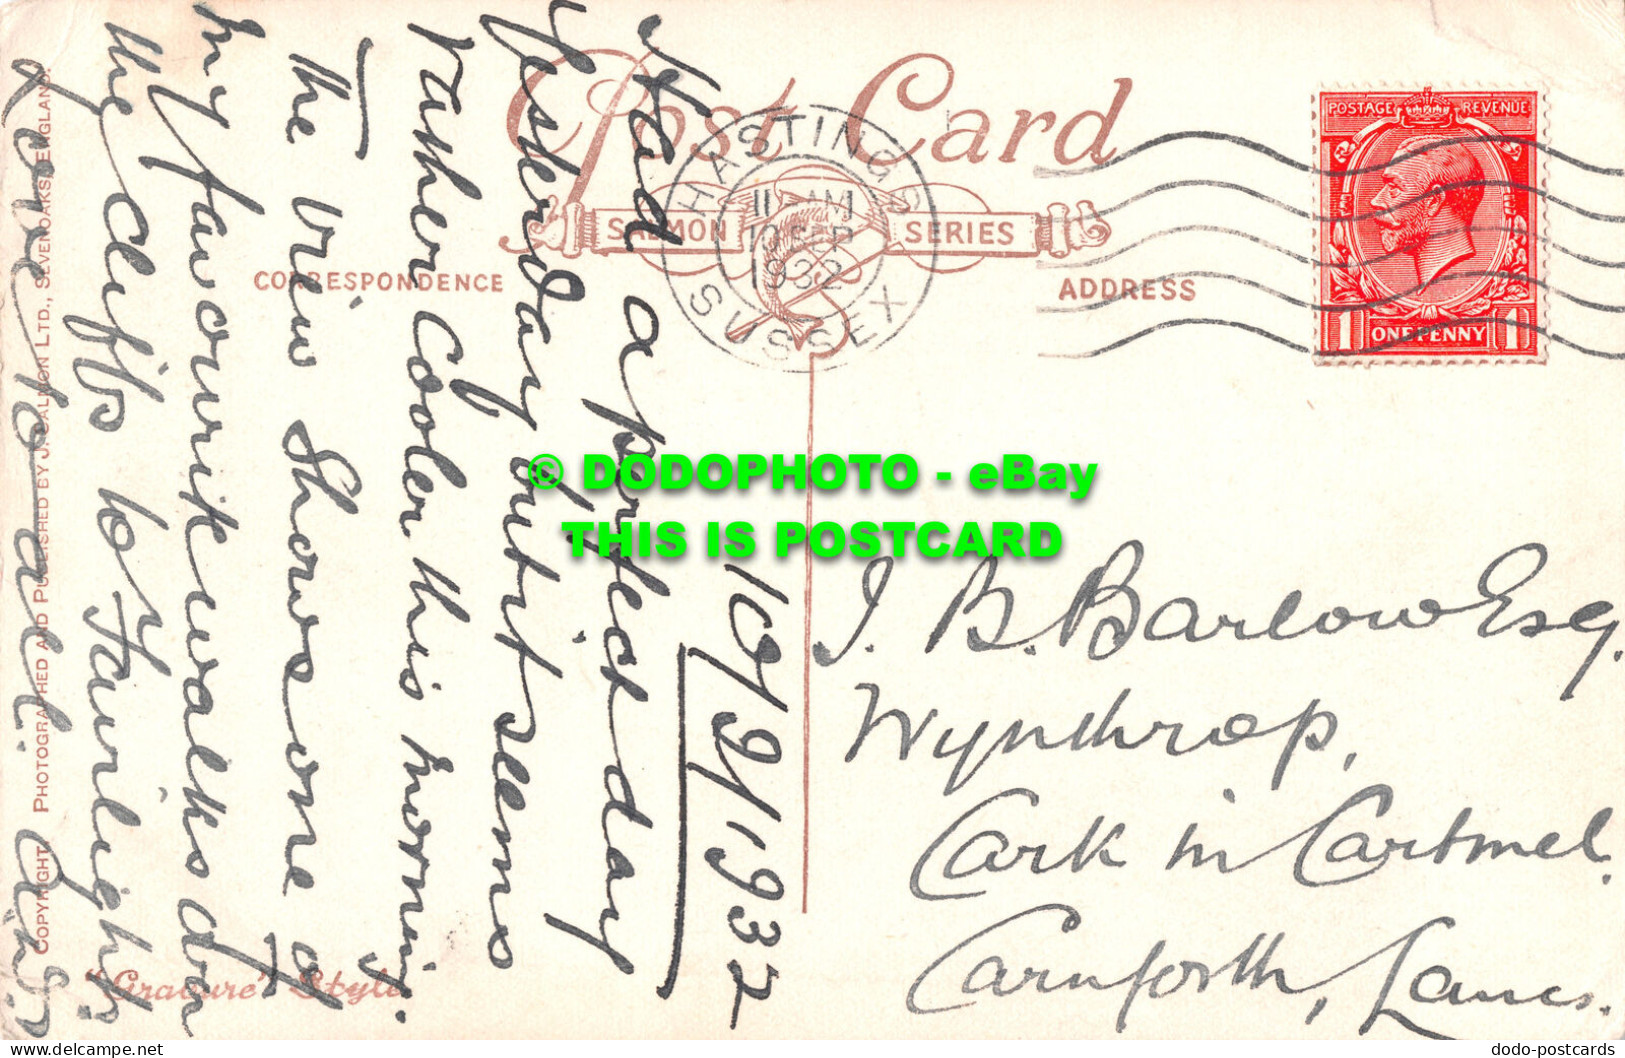 Post Card
SALMON SERIES
CORRESPONDENCE
ADDRESS
HASTINGS
11 AM
10 SEP
1932
SUSSEX
POSTAGE REVENUE
1 ONE PENNY 1
10/9/1932
Had a perfect day
yesterday but it seems
rather cooler this morning.
The view shows one of
my favourite walks over
the cliffs to Fairlight.
Love to all.
J. B. Barlow Esq.
Wynthrop,
Cark in Cartmel.
Carnforth, Lancs.
COPYRIGHT. PHOTOGRAPHED AND PUBLISHED BY J. SALMON LTD., SEVENOAKS, ENGLAND.
"Gravure" Style
© DODOPHOTO - eBay
THIS IS POSTCARD
dodo-postcards